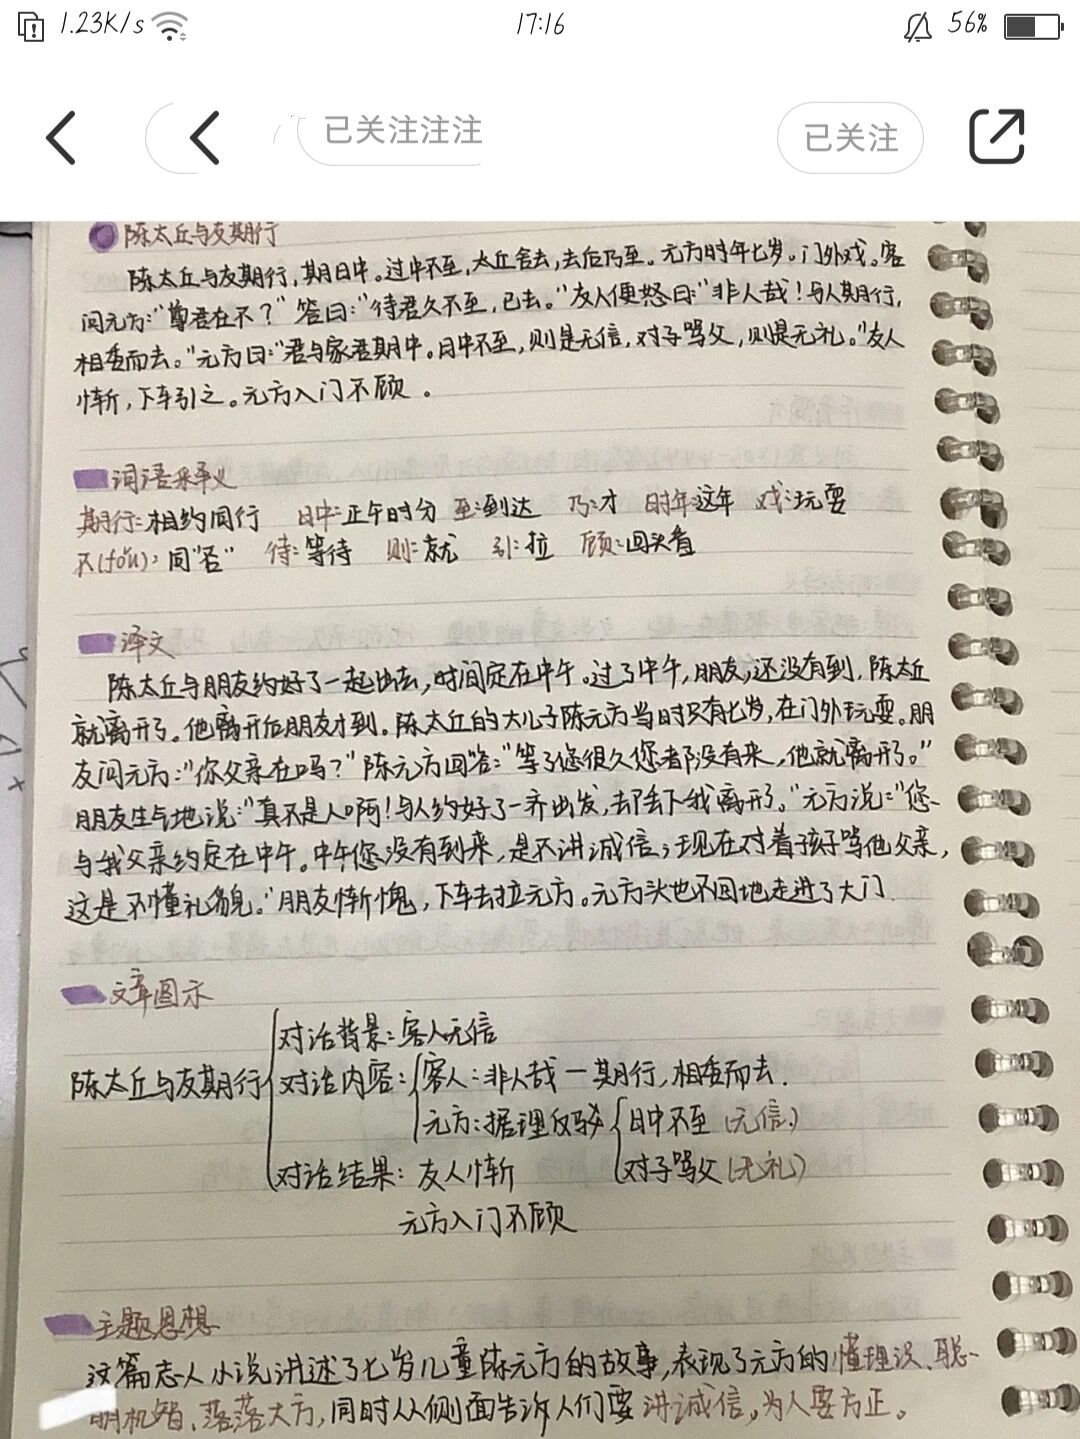 1.23K/s 17:16 56%
已关注注注 已关注
陈太丘与友期行
陈太丘与友期行,期日中。过中不至,太丘舍去,去后乃至。元方时年七岁。门外戏。客
问元方:“尊君在不?”答曰:“待君久不至,已去。”友人便怒曰:“非人哉!与人期行,
相委而去。”元方曰:“君与家君期日中。日中不至,则是无信,对子骂父,则是无礼。”友人
惭,下车引之。元方入门不顾。
词语释义
期行:相约同行 日中:正午时分 至:到达 乃:才 时年:这年 戏:玩耍
不(fǒu):同“否” 待:等待 则:就 引:拉 顾:回头看
译文
陈太丘与朋友约好了一起出去,时间定在中午。过了中午,朋友,还没有到,陈太丘
就离开了。他离开后朋友才到。陈太丘的大儿子陈元方当时只有七岁,在门外玩耍。朋
友问元方:“你父亲在吗?”陈元方回答:“等了您很久您都没有来,他就离开了。”
朋友生气地说:“真不是人啊!与人约好了一齐出发,却丢下我离开了。”元方说:“您
与我父亲约定在中午。中午您没有到来,是不讲诚信;现在对着孩子骂他父亲,
这是不懂礼貌。”朋友惭愧,下车去拉元方。元方头也不回地走进了大门.
文章图示
对话背景:客人无信
陈太丘与友期行 对话内容: 客人:非人哉一期行,相委而去.
元方:据理反驳 日中不至(无信)
对话结果:友人惭 对子骂父(无礼)
元方入门不顾
主题思想
这篇志人小说讲述了七岁儿童陈元方的故事,表现了元方的懂理识、聪
明机智、落落大方,同时从侧面告诉人们要讲诚信,为人要方正。